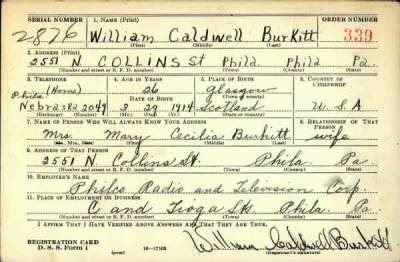 SERIAL NUMBER 1. NAME (Print) ORDER NUMBER
2876 William Caldwell Burkitt 339
(First) (Middle) (Last)
2. ADDRESS (Print)
2551 N COLLINS St Phila. Phila Pa.
(Number and street or R. F. D. number) (Town) (County) (State)
3. TELEPHONE 4. AGE IN YEARS 5. PLACE OF BIRTH 6. COUNTRY OF CITIZENSHIP
Phila (Home) 26 Glasgow
DATE OF BIRTH (Town or county)
Nebraska 2049 3 29 1914 Scotland U.S.A
(Exchange) (Number) (Mo.) (Day) (Yr.) (State or country)
7. NAME OF PERSON WHO WILL ALWAYS KNOW YOUR ADDRESS 8. RELATIONSHIP OF THAT PERSON
Mrs. Mary Cecilia Burkitt wife
(Mr., Mrs., Miss) (First) (Middle) (Last)
9. ADDRESS OF THAT PERSON
2551 N Collins St. Phila. Pa.
(Number and street or R. F. D. number) (Town) (County) (State)
10. EMPLOYER'S NAME
Philco Radio and Television Corp.
11. PLACE OF EMPLOYMENT OR BUSINESS
C and Tioga Sts. Phila. Pa.
(Number and street or R. F. D. number) (Town) (County) (State)
I AFFIRM THAT I HAVE VERIFIED ABOVE ANSWERS AND THAT THEY ARE TRUE.
REGISTRATION CARD
D. S. S. Form 1 16-17105 William Caldwell Burkitt
(Registrant's signature)